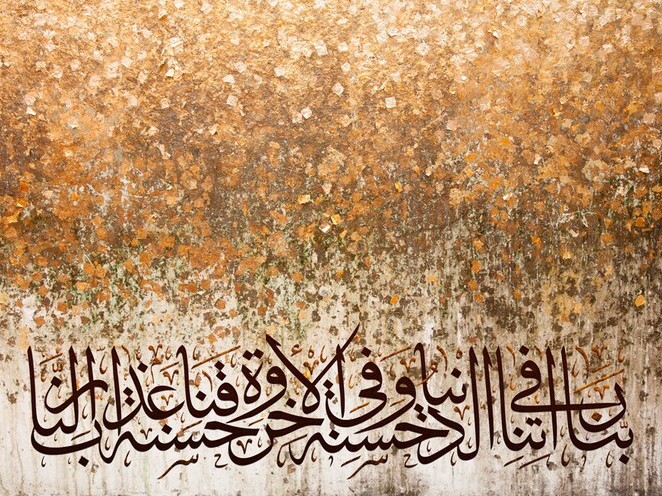 ربنا آتنا في الدنيا حسنة وفي الآخرة حسنة وقنا عذاب النار